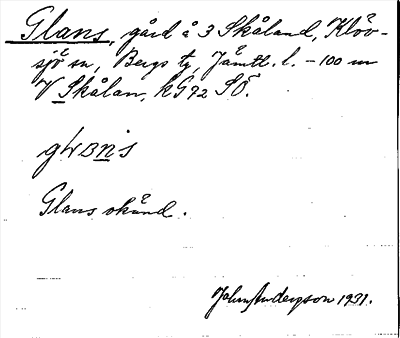 Glans, gård å 3 Skåland, Klöv-
sjö sn, Bergs tg, Jämtl. l. – 100 m
V Skålan, kG92 SÖ.
Glans okänd.
John Anderson 1931.